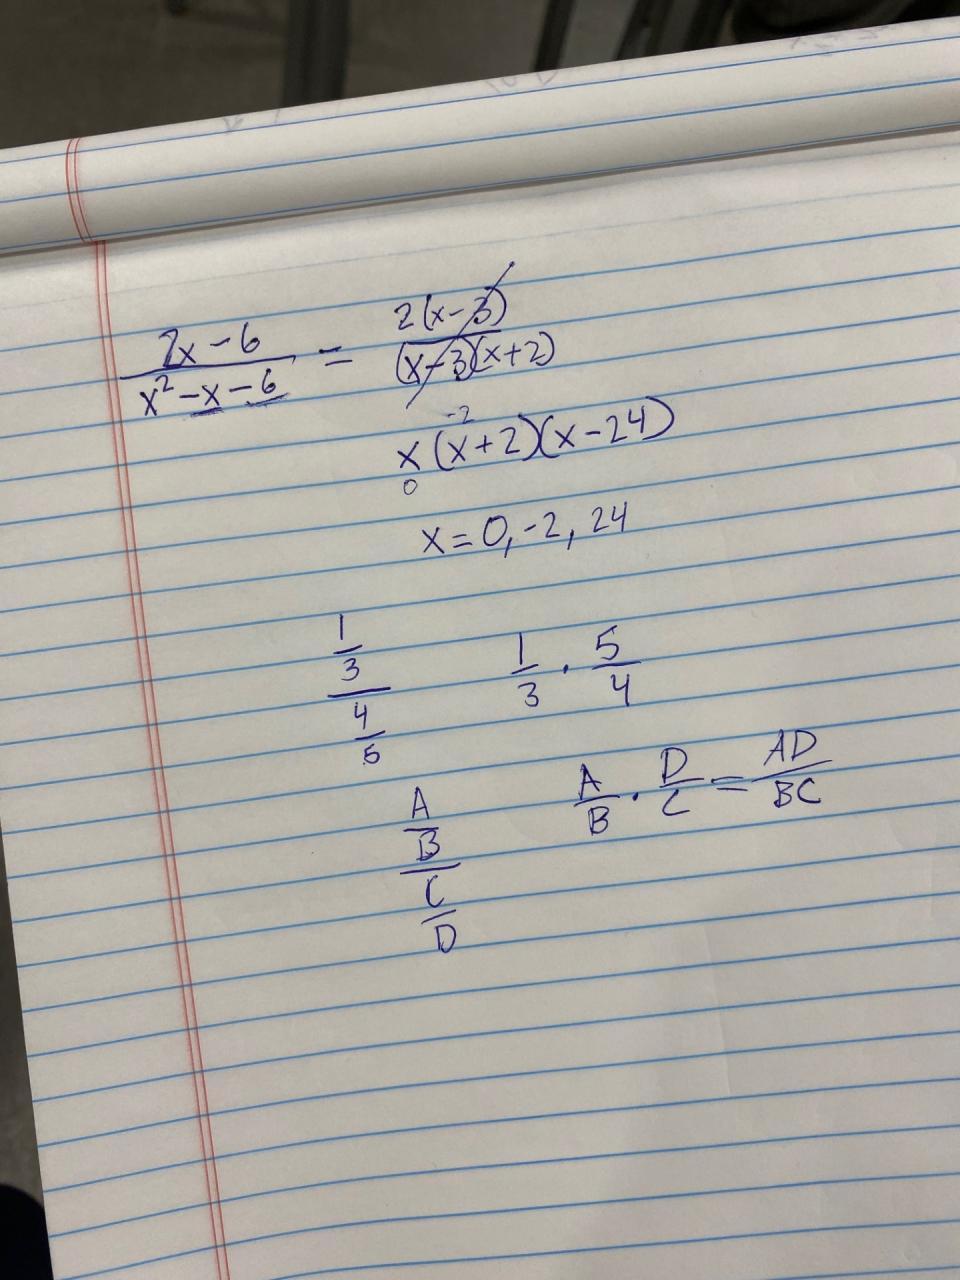 2x-6 / x²-x-6 = 2(x-3) / (x-3)(x+2)
-2
x(x+2)(x-24)
0
x=0,-2,24
1/3 / 4/5    1/3 · 5/4
A/B / C/D    A/B · D/C = AD/BC